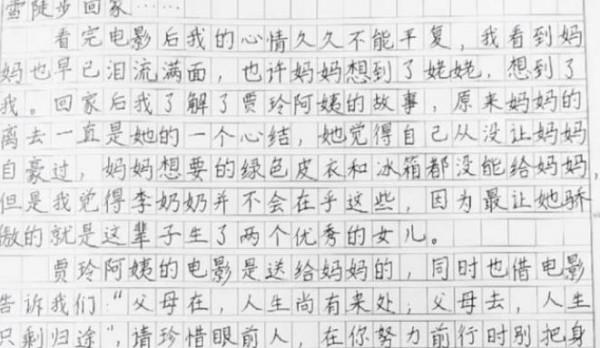 雪徒步回家……
看完电影后我的心情久久不能平复，我看到妈
妈也早已泪流满面，也许妈妈想到了姥姥，想到了
我。回家后我了解了贾玲阿姨的故事，原来妈妈的
离去一直是她的一个心结，她觉得自己从没让妈妈
自豪过，妈妈想要的绿色皮衣和冰箱都没能给妈妈，
但是我觉得李奶奶并不会在乎这些，因为最让她骄
傲的就是这辈子生了两个优秀的女儿。
贾玲阿姨的电影是送给妈妈的，同时也借电影
告诉我们“父母在，人生尚有来处；父母去，人生
只剩归途”，请珍惜眼前人，在你努力前行时别把身